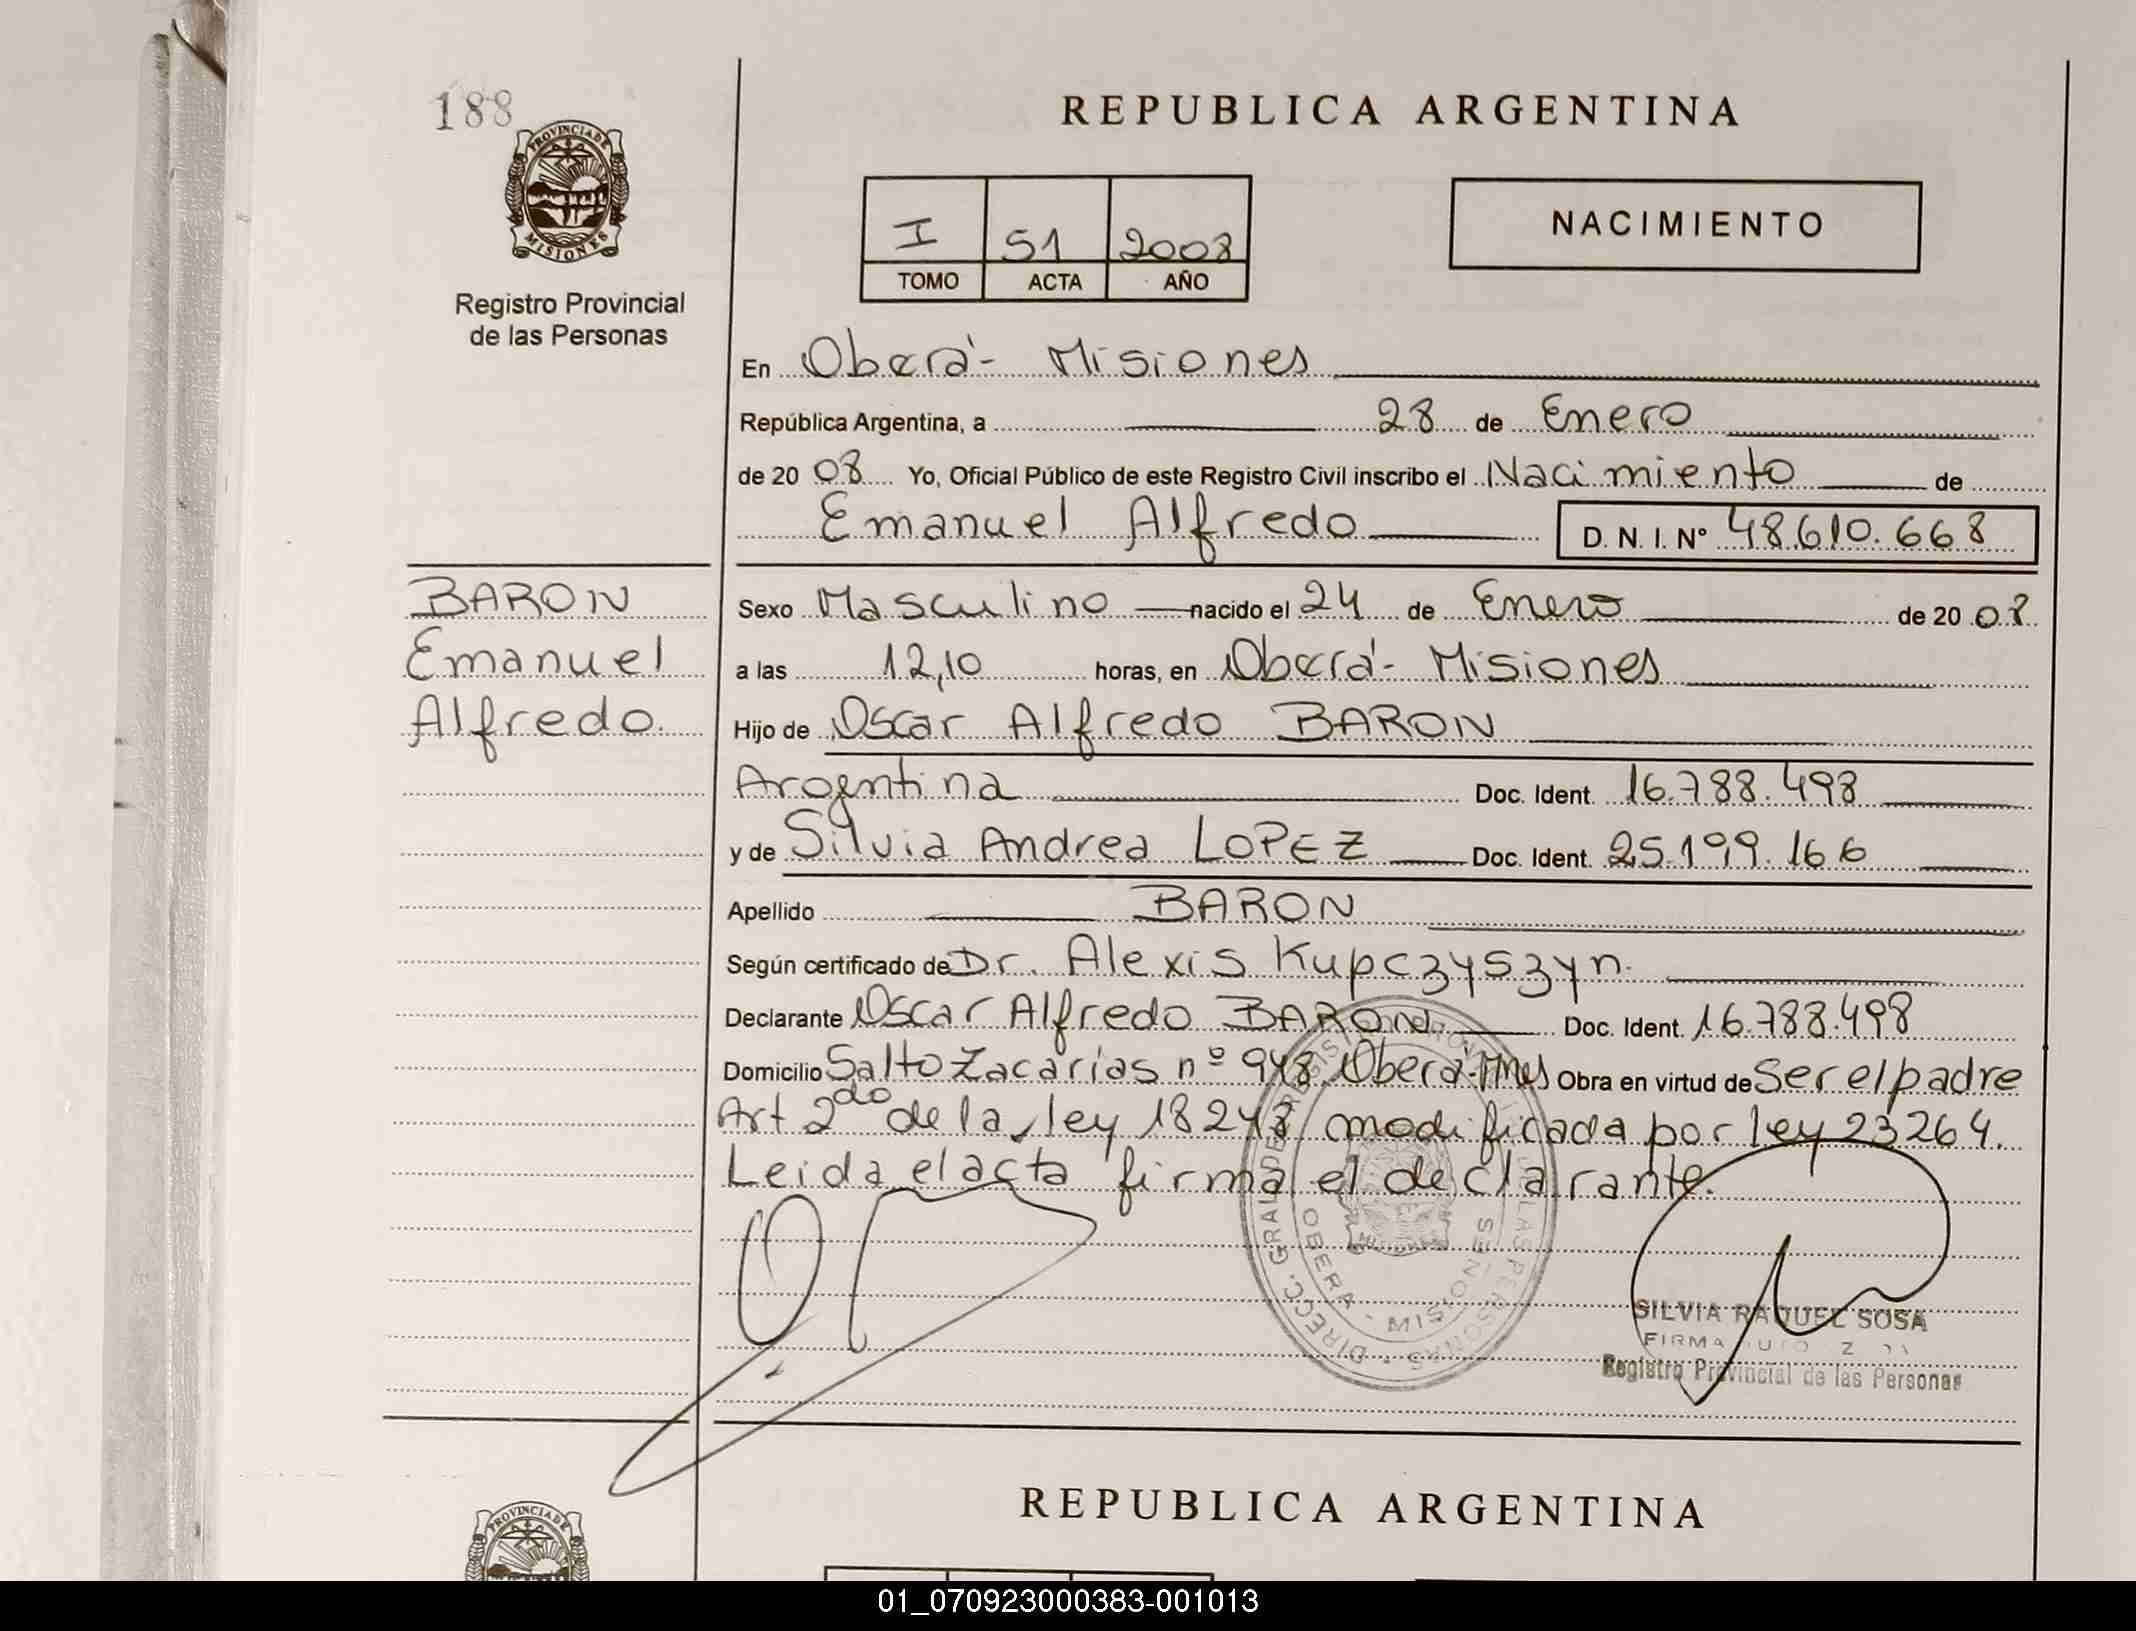 188
PROVINCIA DE
MISIONES
Registro Provincial
de las Personas
REPUBLICA ARGENTINA
I 51 2008
TOMO ACTA AÑO
NACIMIENTO
En Oberá - Misiones
República Argentina, a 28 de Enero
de 20 08 Yo, Oficial Público de este Registro Civil inscribo el Nacimiento de
Emanuel Alfredo D. N. I. Nº 48.610.668
BARON
Emanuel
Alfredo.
Sexo Masculino nacido el 24 de Enero de 20 08
a las 12,10 horas, en Oberá - Misiones
Hijo de Oscar Alfredo BARON
Argentina Doc. Ident. 16.788.498
y de Silvia Andrea LOPEZ Doc. Ident. 25.199.166
Apellido BARON
Según certificado de Dr. Alexis Kupczyszyn.
Declarante Oscar Alfredo BARON Doc. Ident. 16.788.498
Domicilio Salto Zacarías nº 948 Oberá - Mnes Obra en virtud de Ser el padre
Art 2do de la ley 18248 modificada por ley 23264.
Leida el acta firma el declarante.
DIRECC. GRAL DE REGISTRO PROVINCIAL DE LAS PERSONAS
OBERA - MISIONES
SILVIA RAQUEL SOSA
FIRMA
Registro Provincial de las Personas
PROVINCIA DE
REPUBLICA ARGENTINA
01_070923000383-001013